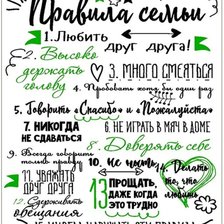 Правила семьи
1. Любить
друг друга!
2. Высоко
держать
голову
3. МНОГО СМЕЯТЬСЯ
4. Пробовать хотя бы один раз
5. Говорить «Спасибо» и «Пожалуйста»
7. НИКОГДА
НЕ СДАВАТЬСЯ
6. НЕ ИГРАТЬ В МЯЧ В ДОМЕ
8. Доверять себе
9. Всегда говорить
10. Не
11. УВАЖАТЬ
ДРУГ ДРУГА
13 ПРОЩАТЬ,
ДАЖЕ КОГДА
ЭТО ТРУДНО
14. Делать
то, что
12. Сдерживать
обещания